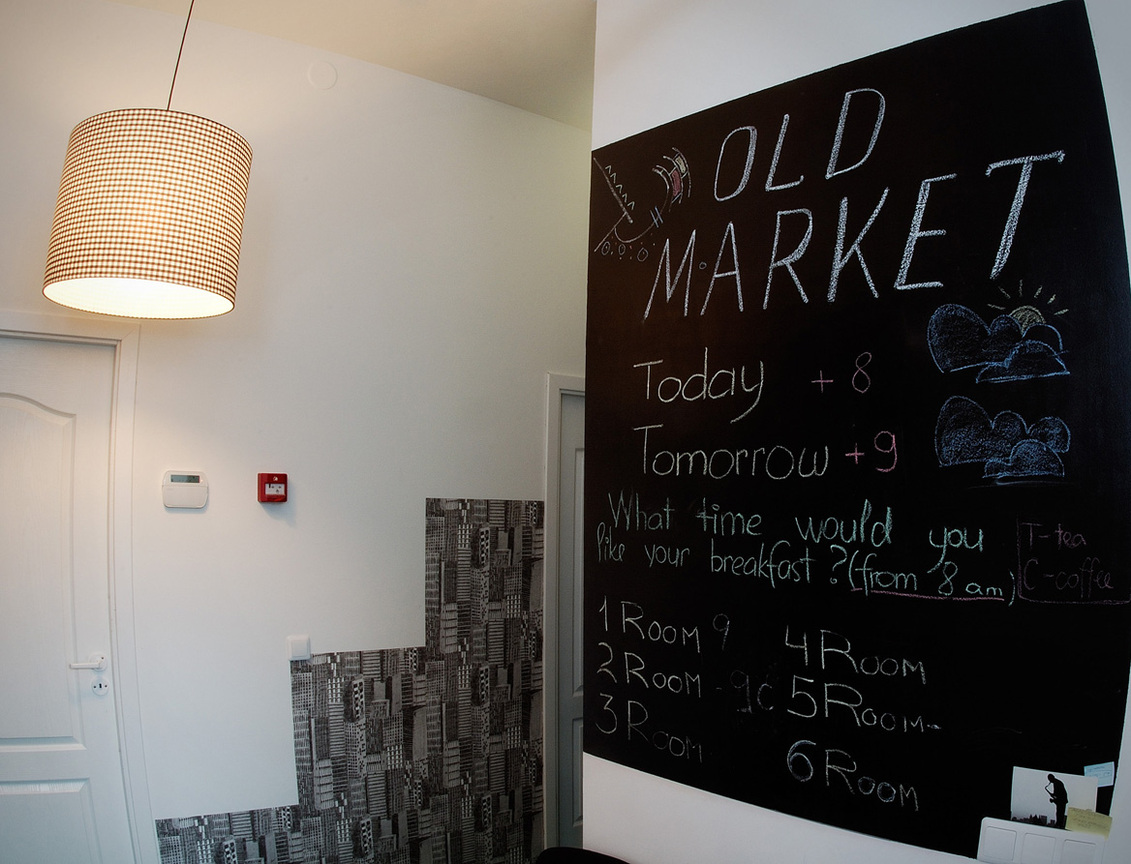 OLD
MARKET
Today +8
Tomorrow +9
What time would you
like your breakfast? (from 8 am)
T-tea
C-coffee
1 ROOM 9
2 ROOM - 9C
3 ROOM
4 ROOM
5 ROOM-
6 ROOM